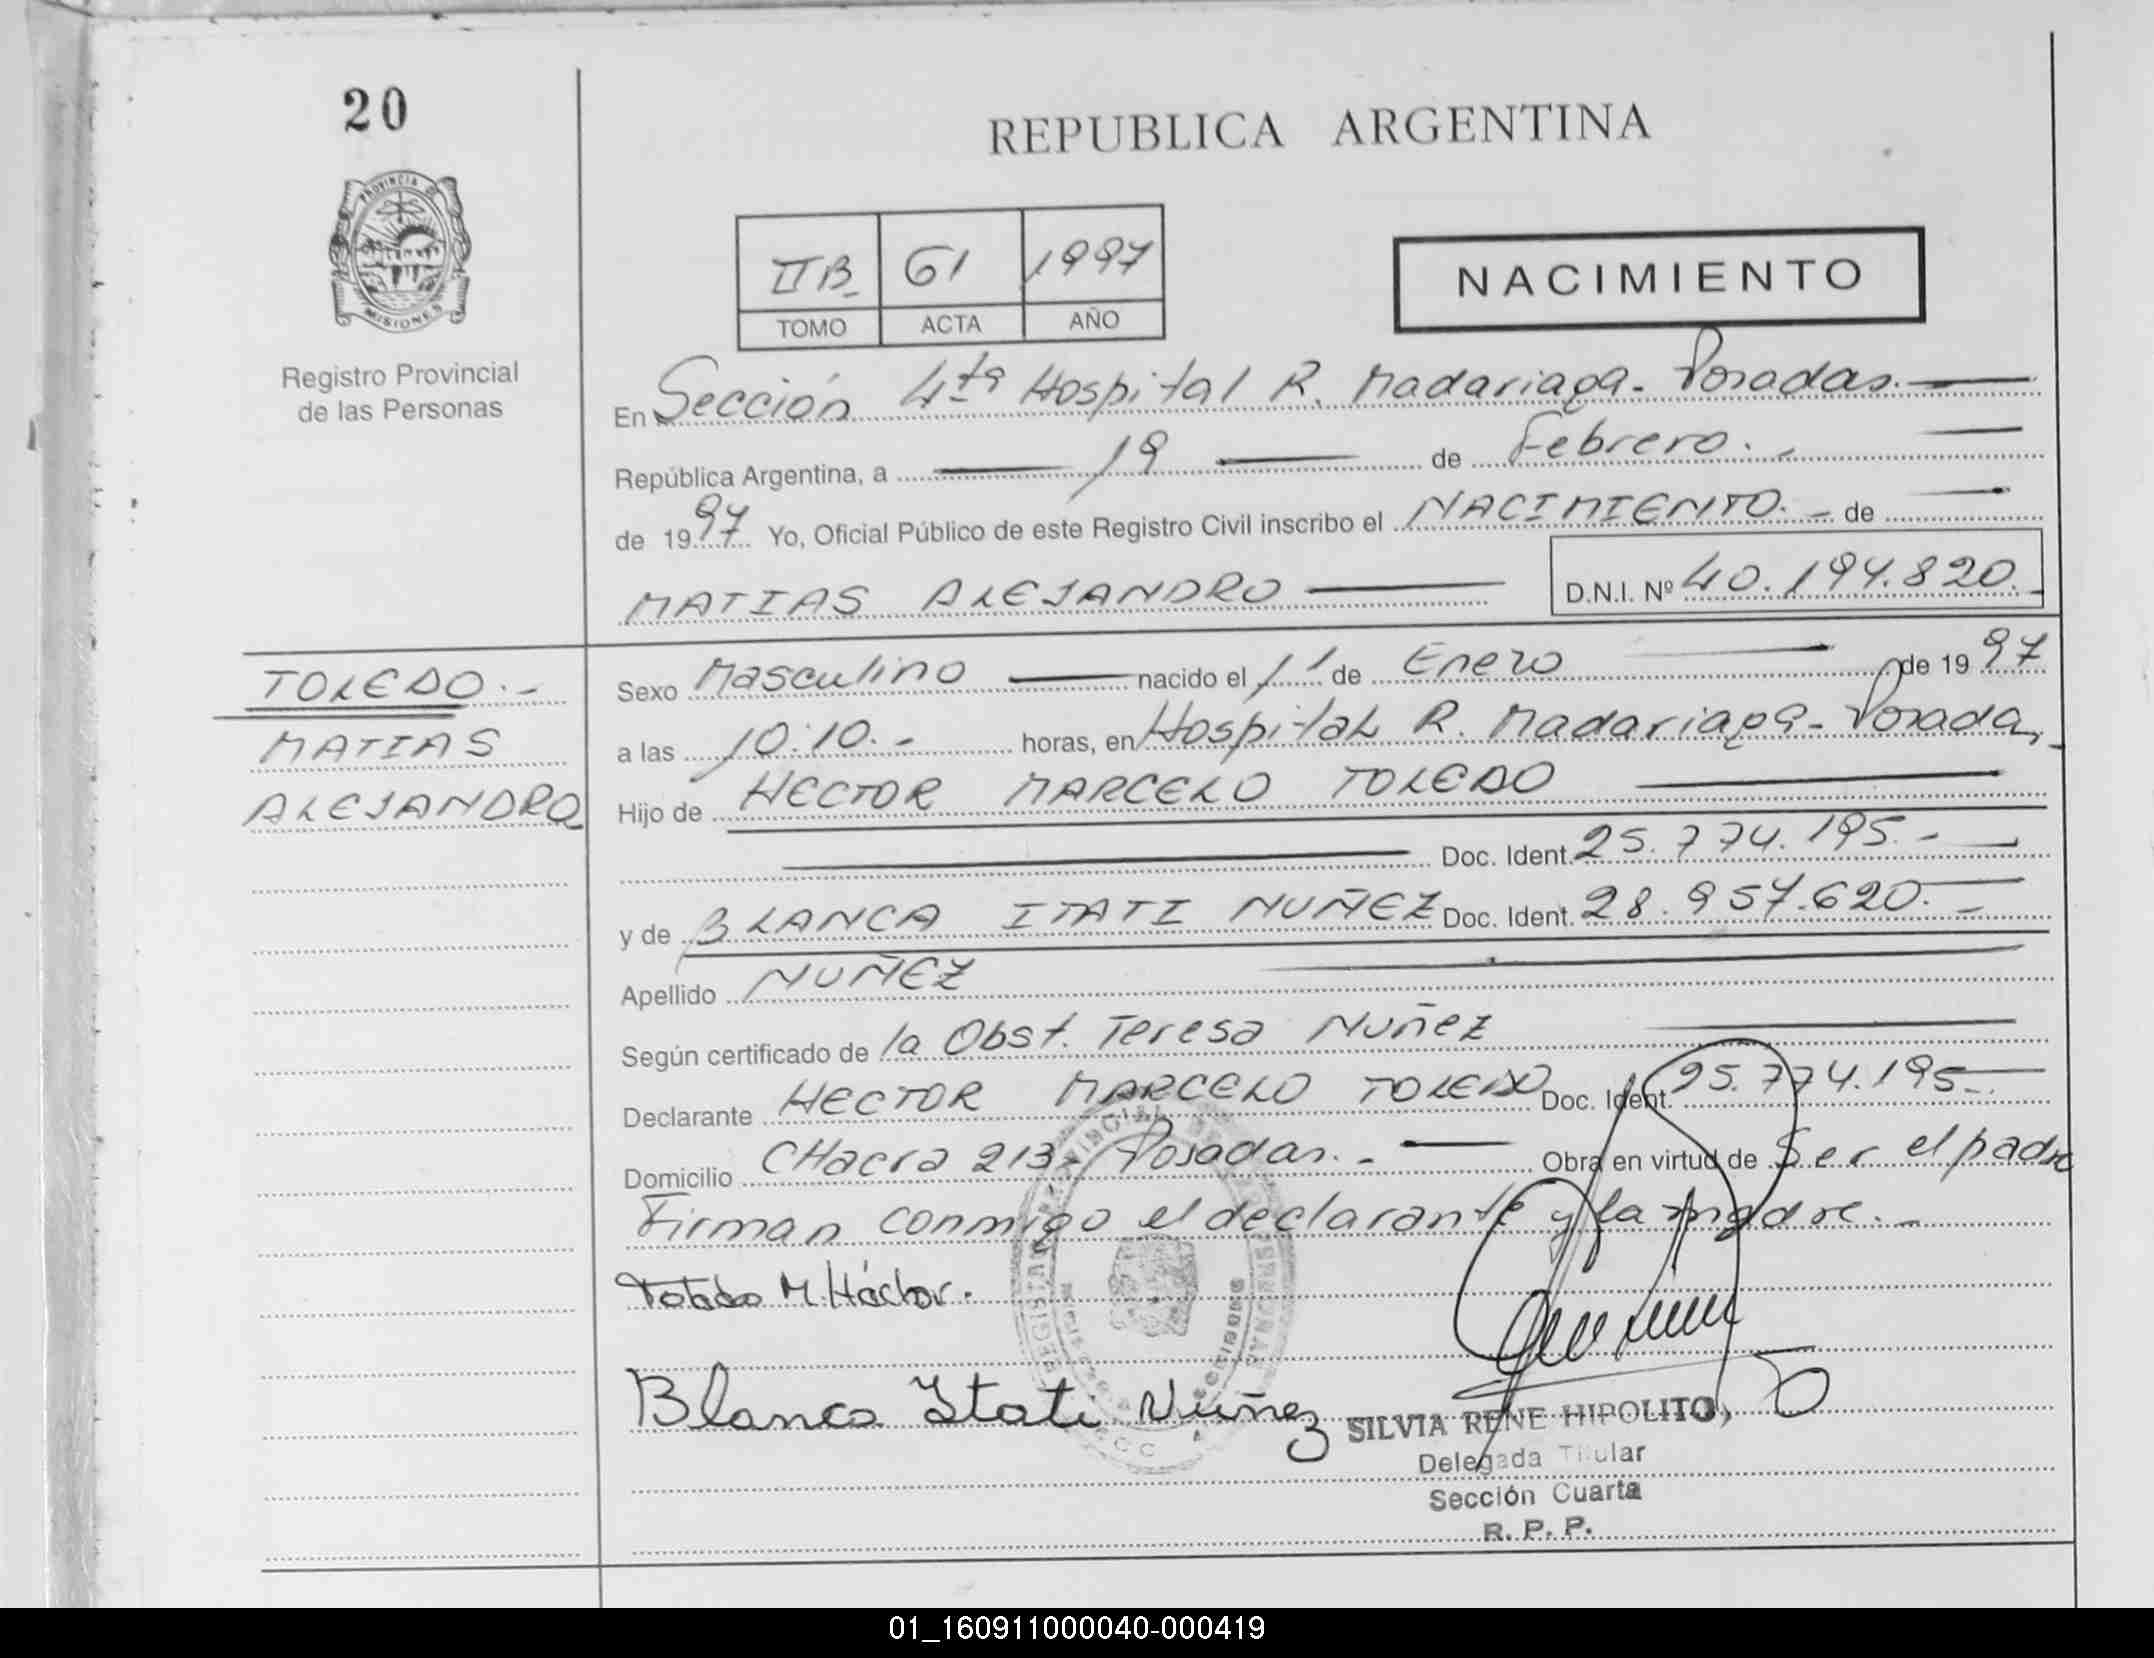 20
REPUBLICA ARGENTINA
PROVINCIA DE
MISIONES
Registro Provincial
de las Personas
IIB 61 1997
TOMO ACTA AÑO
NACIMIENTO
En Sección 4ta Hospital R. Madariaga - Posadas.
República Argentina, a 19 de Febrero.-
de 1997 Yo, Oficial Público de este Registro Civil inscribo el NACIMIENTO.- de
MATIAS ALEJANDRO D.N.I. Nº 40.194.820.-
TOLEDO.-
MATIAS
ALEJANDRO
Sexo Masculino nacido el 11 de Enero de 1997
a las 10:10.- horas, en Hospital R. Madariaga - Posadas,-
Hijo de HECTOR MARCELO TOLEDO
Doc. Ident. 25.774.195.-
y de BLANCA ITATI NUÑEZ Doc. Ident. 28.957.620.-
Apellido NUÑEZ
Según certificado de la Obst. Teresa Nuñez
Declarante HECTOR MARCELO TOLEDO Doc. Ident. 25.774.195.-
Domicilio CHacra 213 - Posadas.- Obra en virtud de Ser el padre
Firman conmigo el declarante y la madre.-
Toledo M. Héctor.
Blanca Itati Nuñez
SILVIA RENE HIPOLITO
Delegada Titular
Sección Cuarta
R. P. P.
01_160911000040-000419